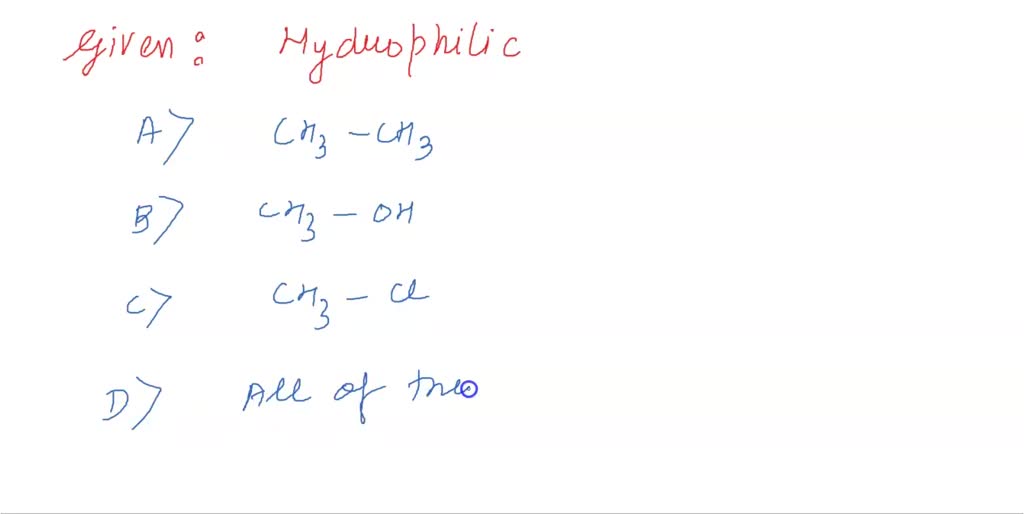 Given: Hydrophilic
A> CH3 - CH3
B> CH3 - OH
C> CH3 - Cl
D> All of